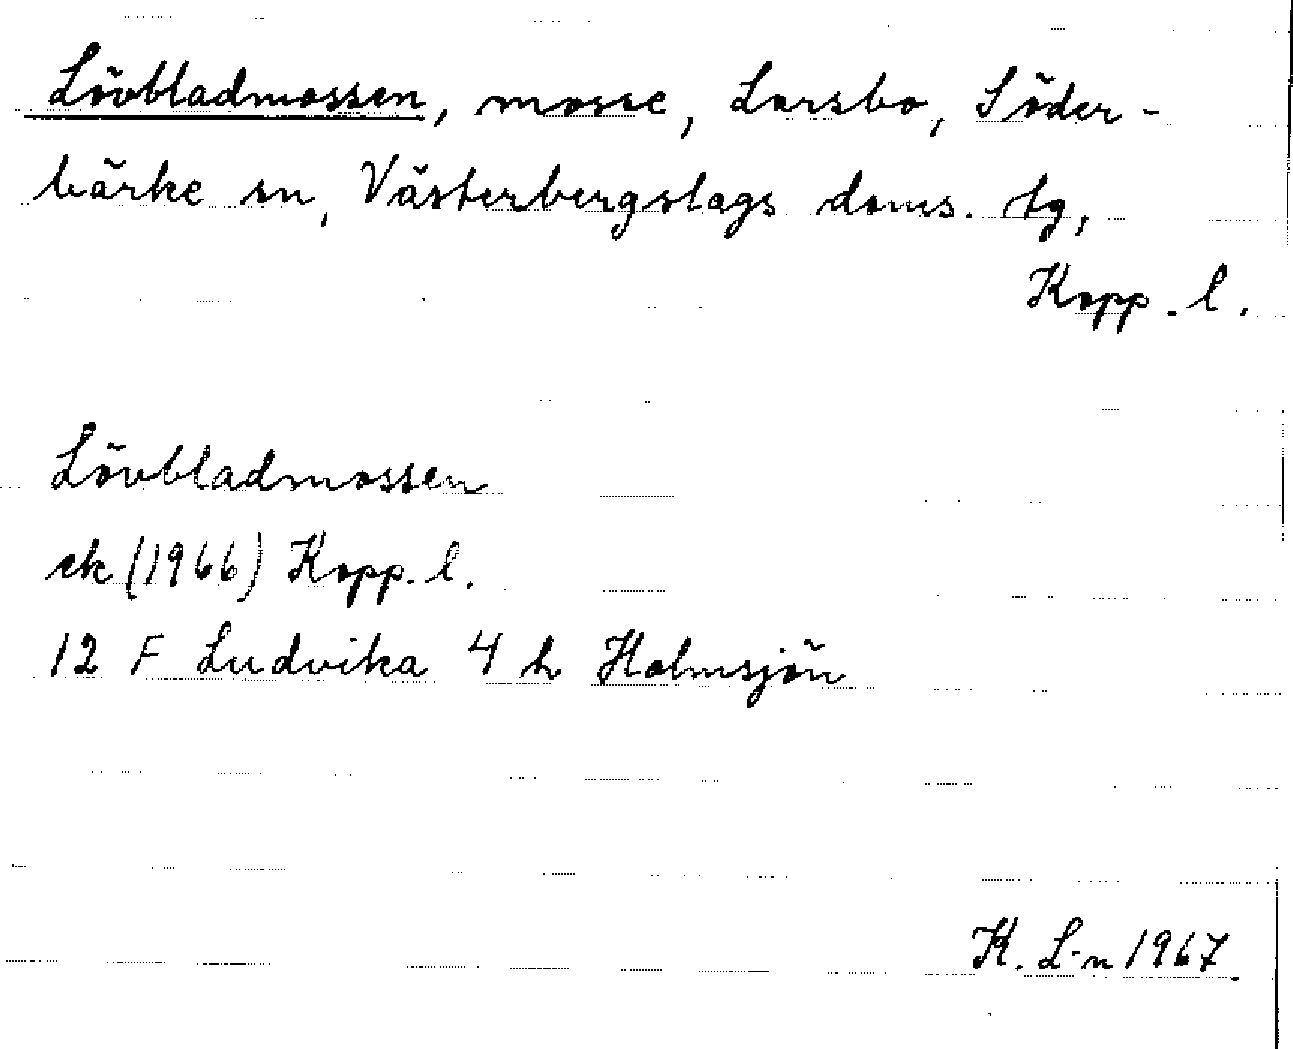 Lövbladmossen, mosse, Larsbo, Söder-
bärke sn, Västerbergslags doms. tg,
Kopp. l.
Lövbladmossen
ek (1966) Kopp. l.
12 F Ludvika 4 h Holmsjön
K. L-n 1967.